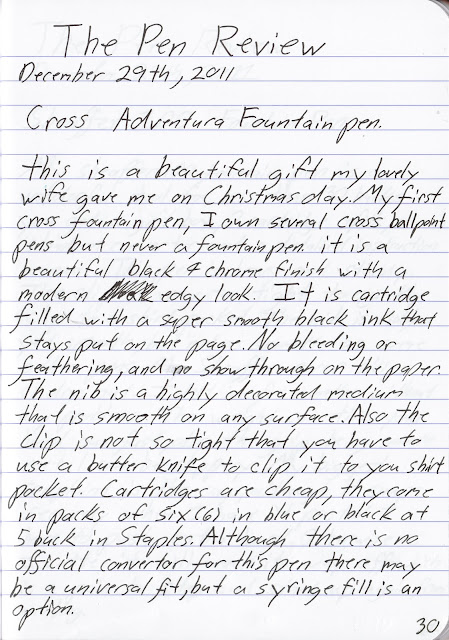 The Pen Review
December 29th, 2011
Cross Adventura Fountain pen.
this is a beautiful gift my lovely
wife gave me on Christmas day. My first
cross fountain pen, I own several cross ballpoint
pens but never a fountain pen. it is a
beautiful black & chrome finish with a
modern edgy look. It is cartridge
filled with a super smooth black ink that
stays put on the page. No bleeding or
feathering, and no show through on the paper.
The nib is a highly decorated medium
that is smooth on any surface. Also the
clip is not so tight that you have to
use a butter knife to clip it to you shirt
pocket. Cartridges are cheap, they come
in packs of six (6) in blue or black at
5 buck in Staples. Although there is no
official convertor for this pen there may
be a universal fit, but a syringe fill is an
option.
30